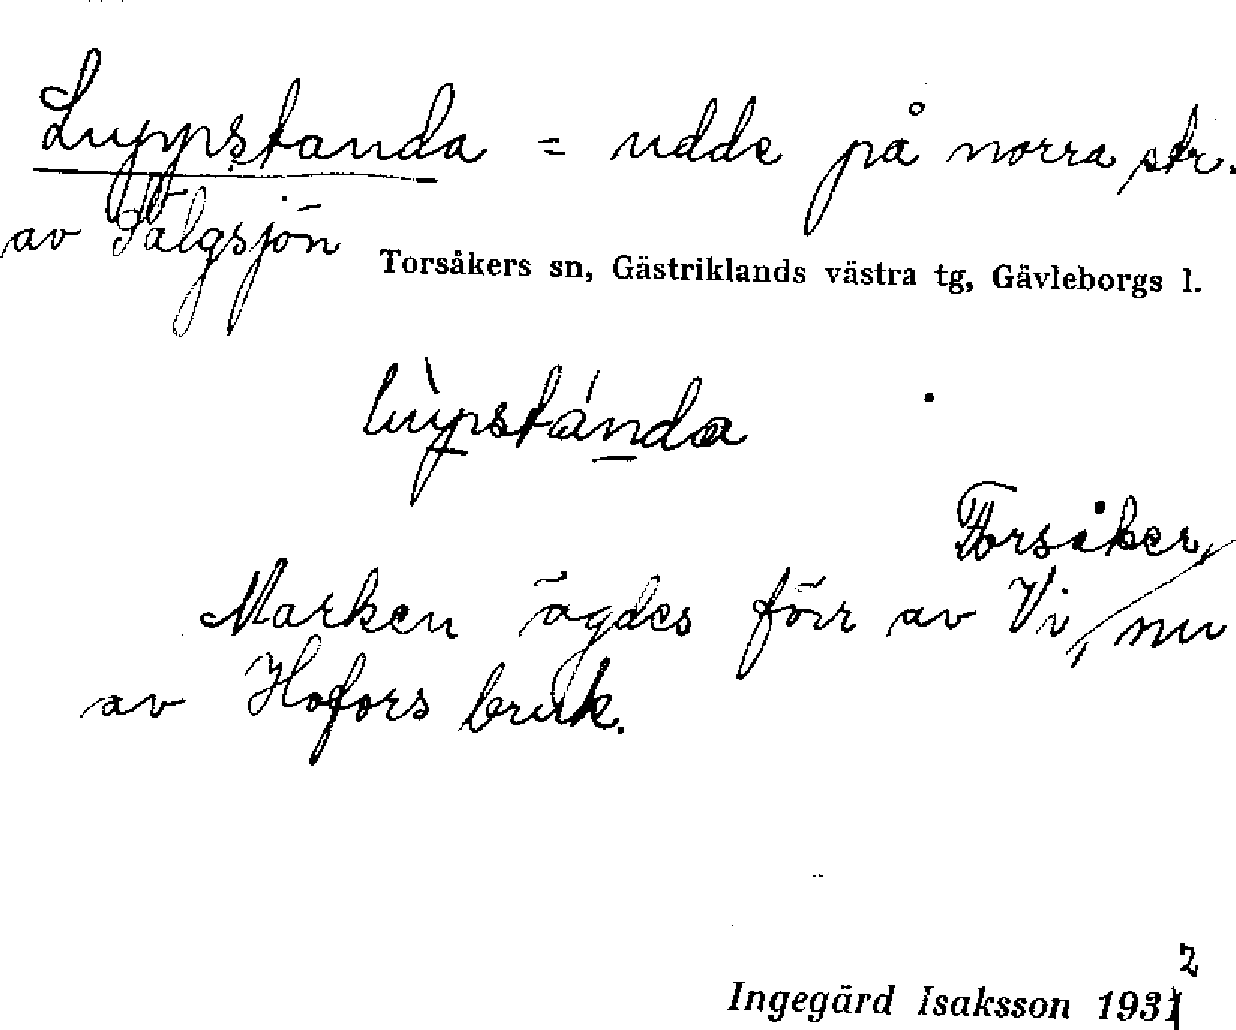 Luppstanda = udde på norra str.
av Sälgsjön
Torsåkers sn, Gästriklands västra tg, Gävleborgs l.
lùpstánda
Torsåker,
Marken ägdes förr av Vi, nu
av Hofors bruk.
2
Ingegärd Isaksson 1931